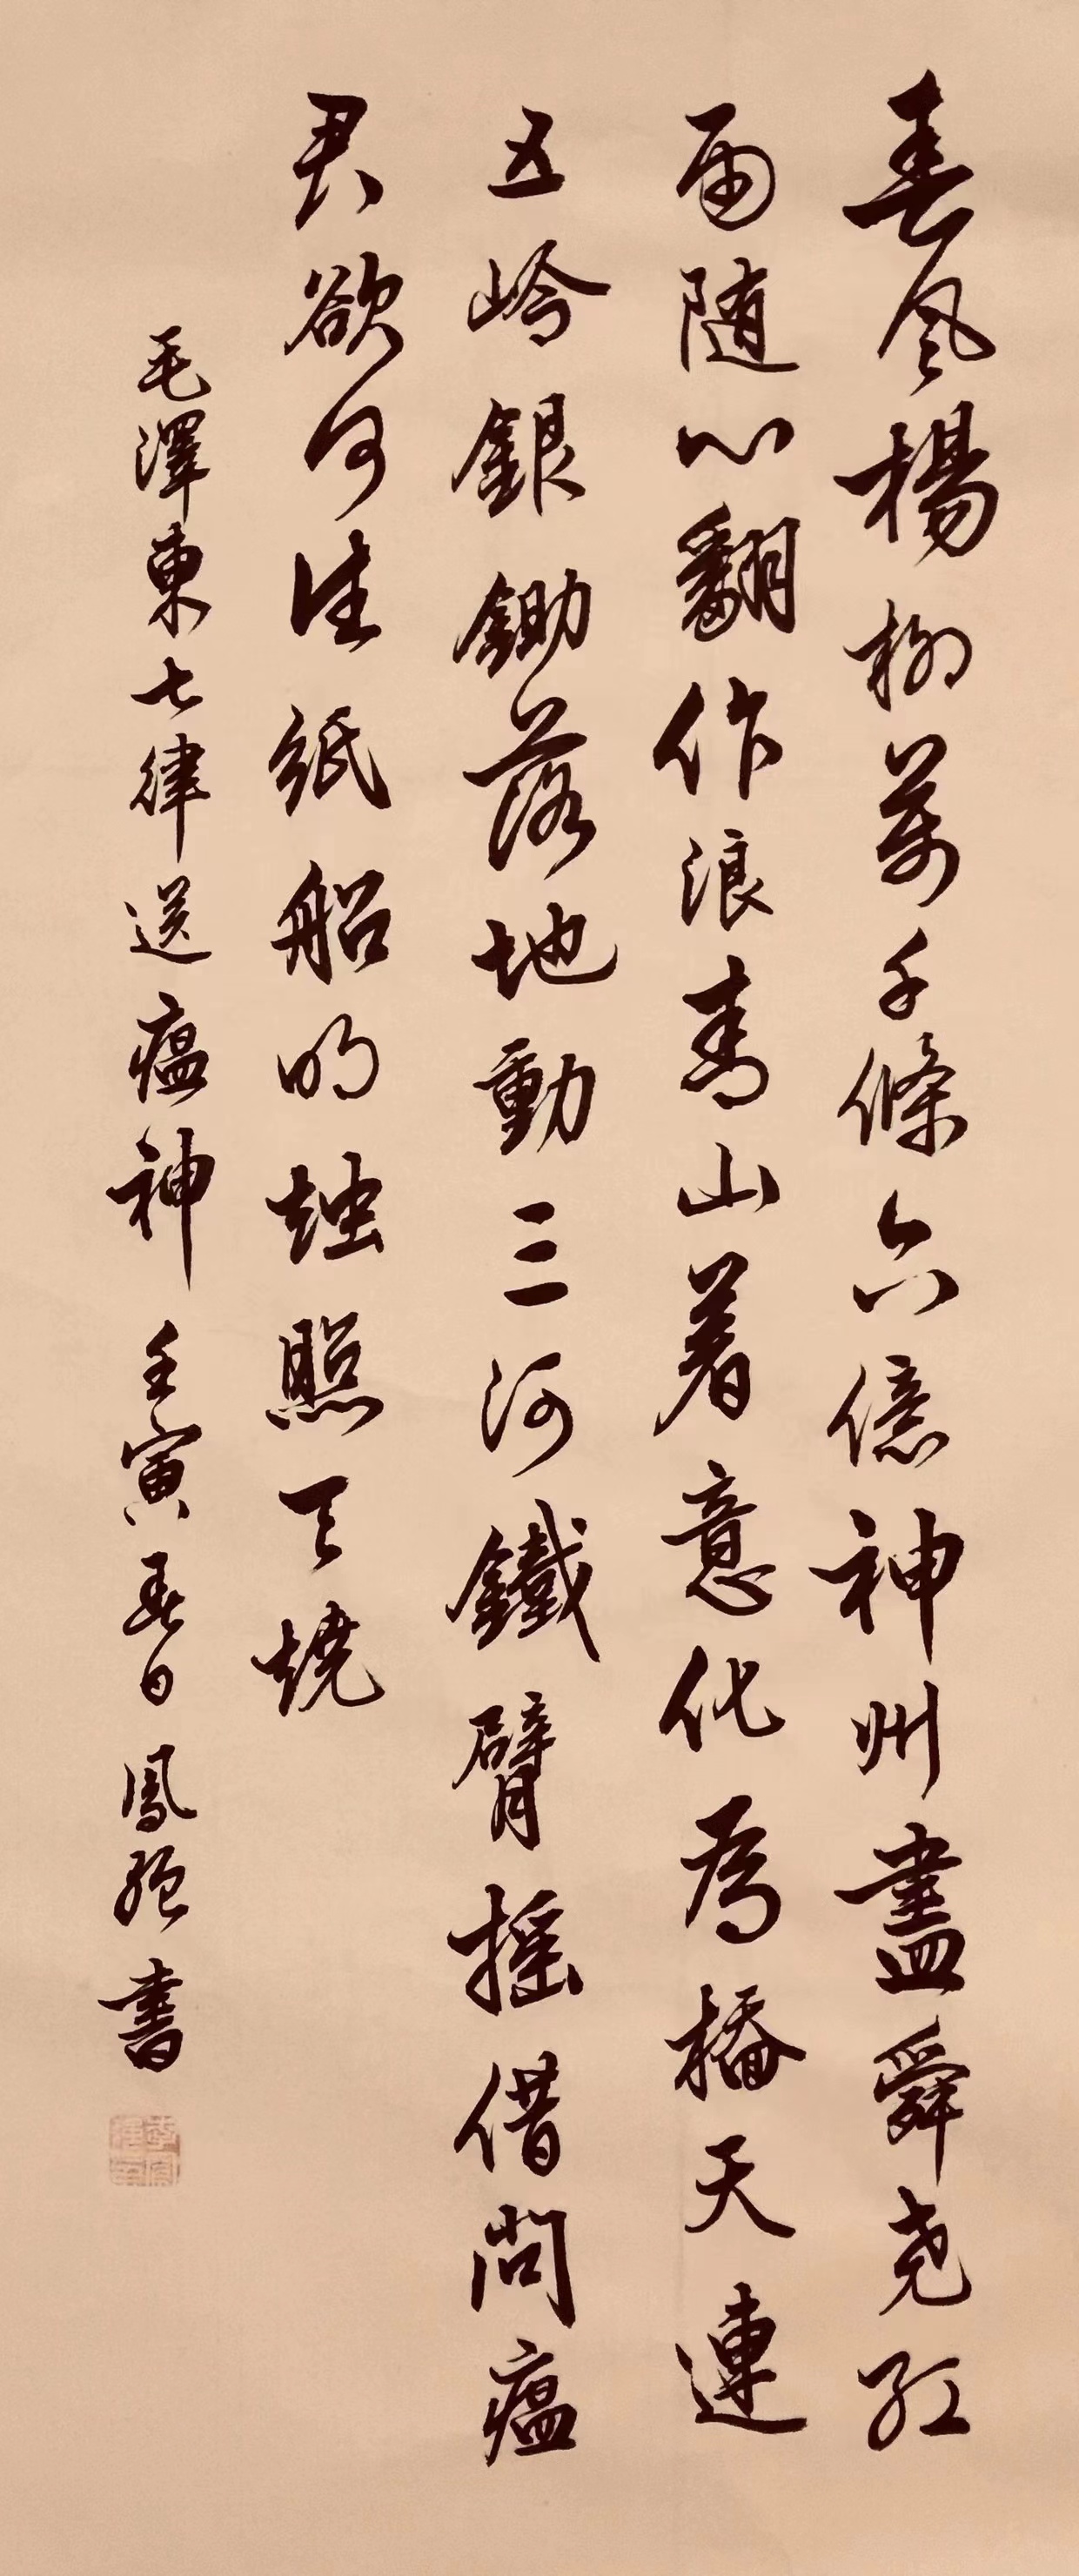 春风楊柳萬千條六億神州盡舜尧红
雨随心翻作浪青山着意化為橋天連
五岭銀鋤落地動三河鐵臂摇借問瘟
君欲何往紙船明烛照天燒
毛澤東七律送瘟神 壬寅春日 鳳書